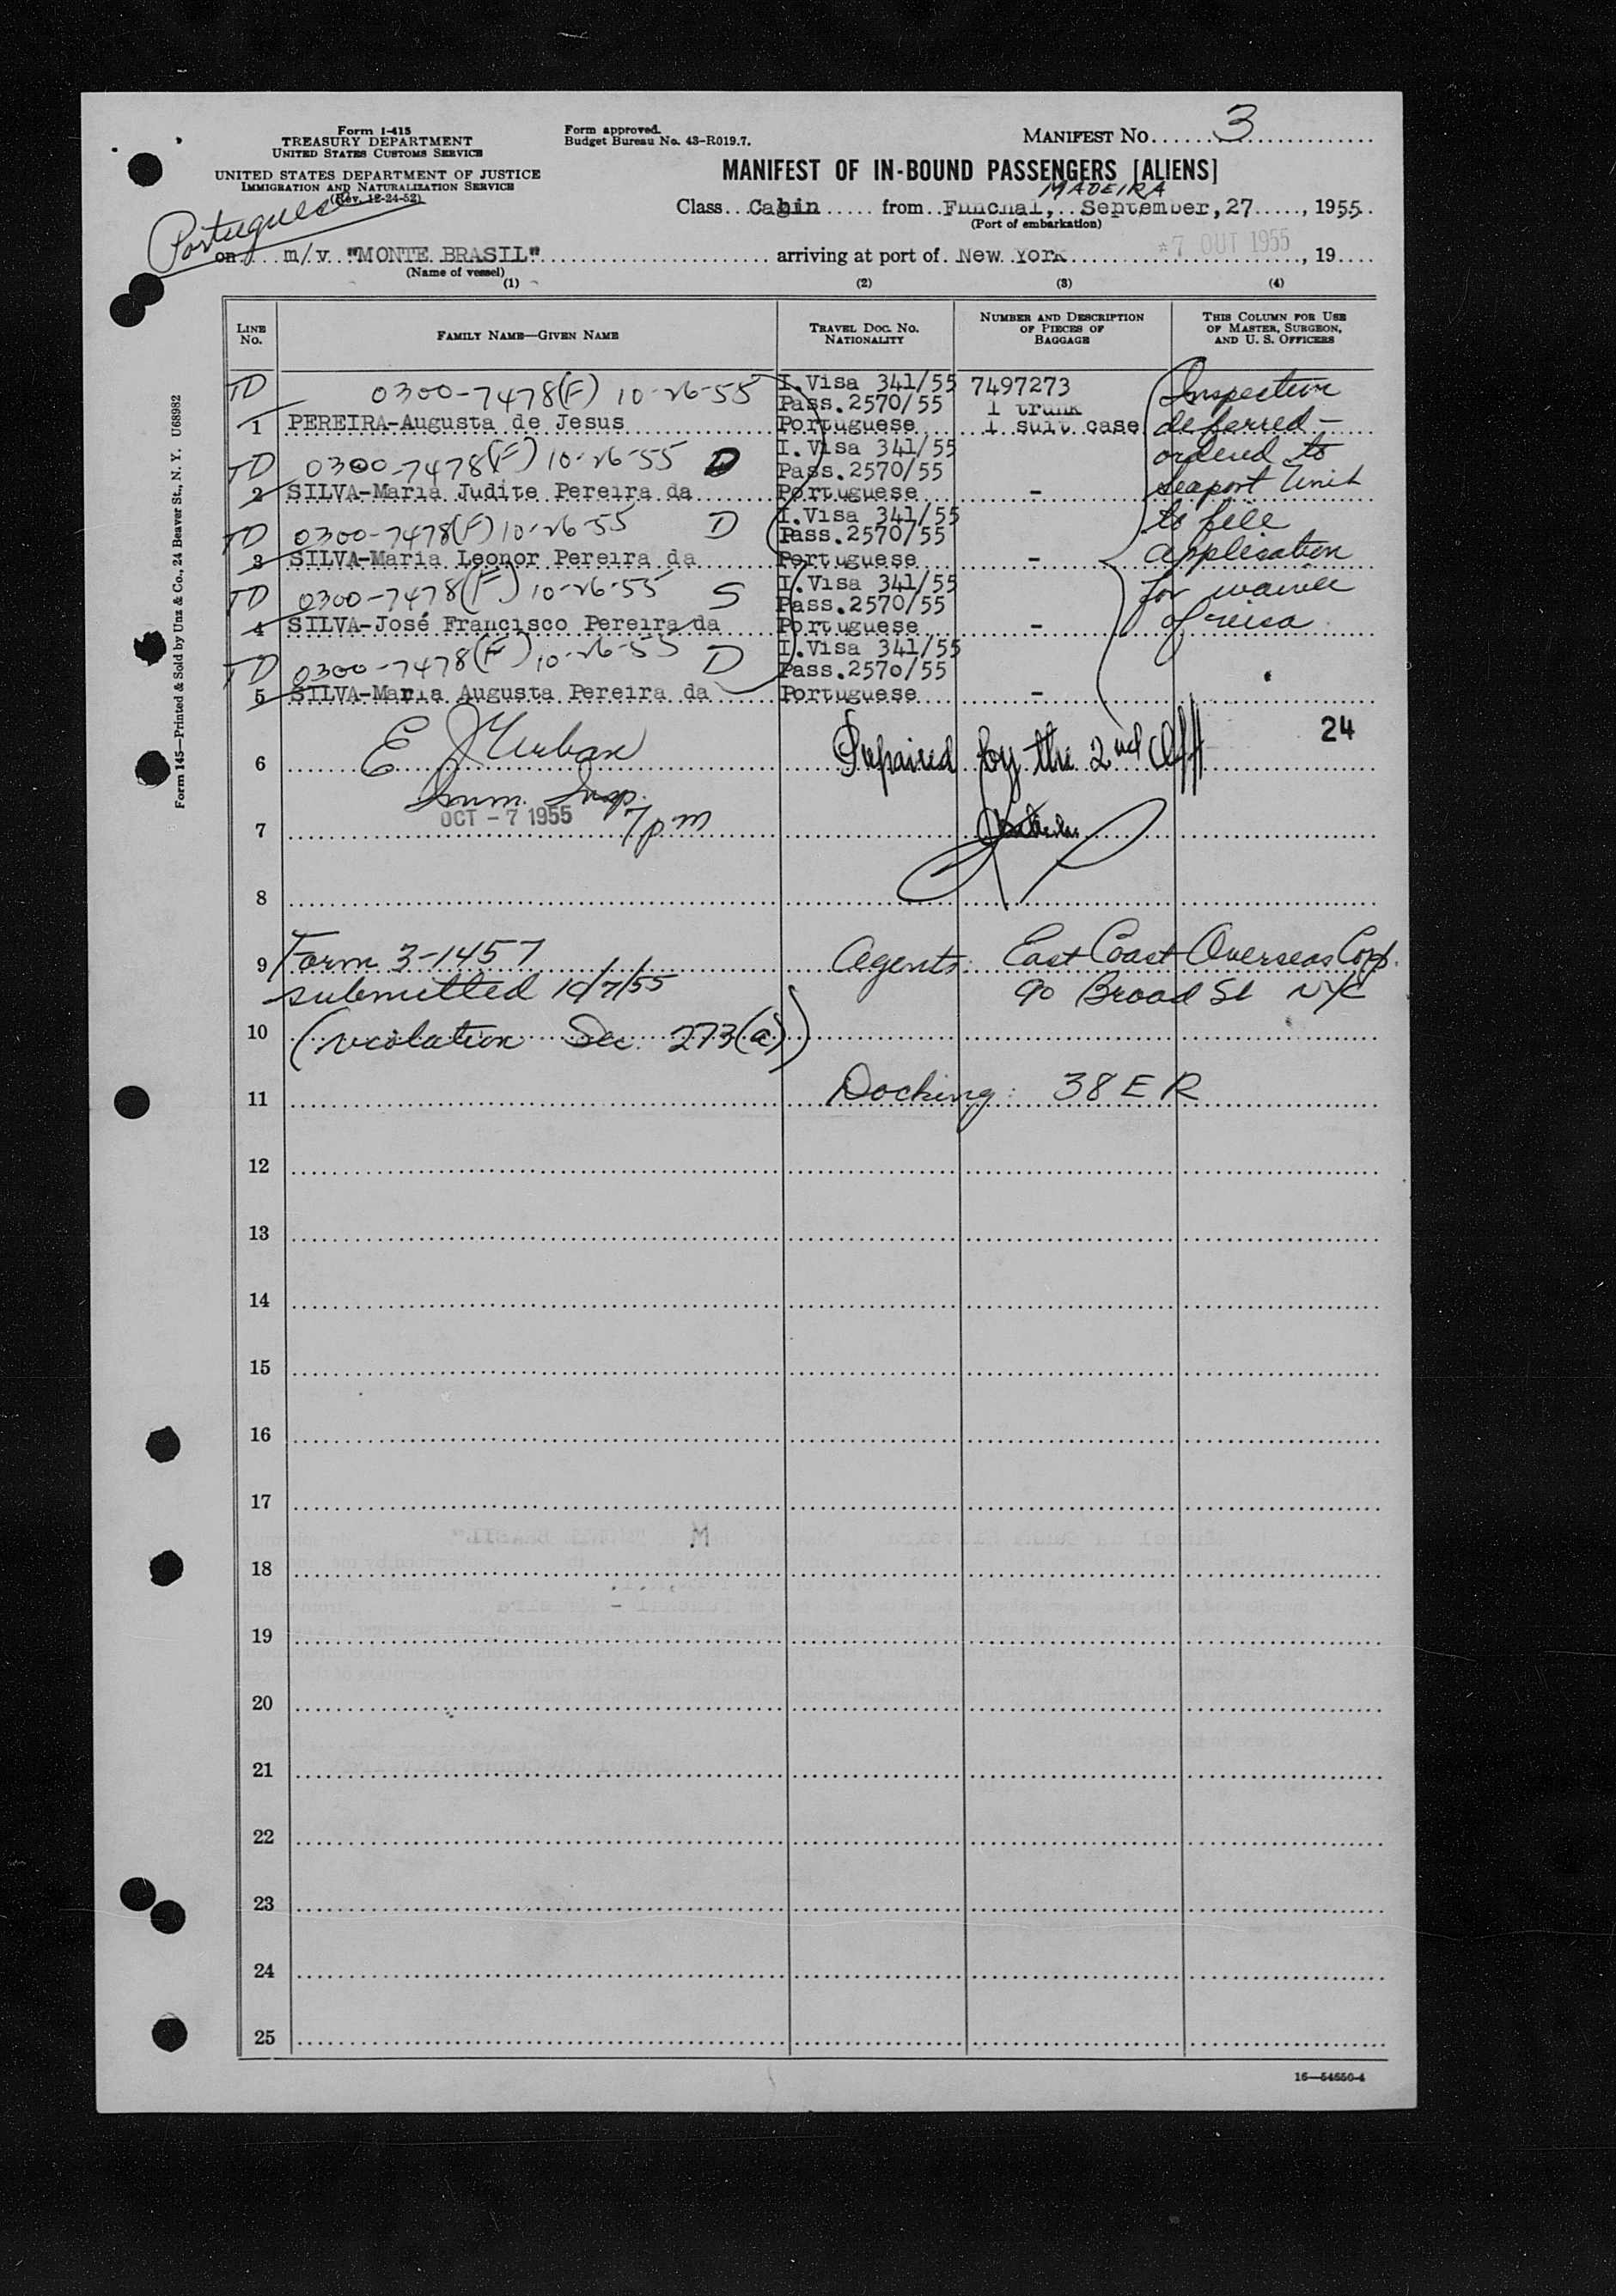 Form I-415
TREASURY DEPARTMENT
UNITED STATES CUSTOMS SERVICE
UNITED STATES DEPARTMENT OF JUSTICE
IMMIGRATION AND NATURALIZATION SERVICE
(Rev. 12-24-52)
Form approved.
Budget Bureau No. 43-R019.7.
MANIFEST NO. 3
MANIFEST OF IN-BOUND PASSENGERS [ALIENS]
MADEIRA
Class Cabin from Funchal, September, 27, 1955
(Port of embarkation)
Portuguese
on m/v "MONTE BRASIL" arriving at port of New York *7 OUT 1955, 19
(Name of vessel)
(1) (2) (3) (4)
LINE No.
FAMILY NAME—GIVEN NAME
TRAVEL DOC. NO. NATIONALITY
NUMBER AND DESCRIPTION OF PIECES OF BAGGAGE
THIS COLUMN FOR USE OF MASTER, SURGEON, AND U. S. OFFICERS
TD 0300-7478(F) 10-26-55 I.Visa 341/55 7497273
Pass.2570/55 1 trunk
1 PEREIRA-Augusta de Jesus Portuguese 1 suit case
TD 0300-7478(F) 10-26-55 D I.Visa 341/55
Pass.2570/55
2 SILVA-Maria Judite Pereira da Portuguese -
TD 0300-7478(F) 10-26-55 D I.Visa 341/55
Pass.2570/55
3 SILVA-Maria Leonor Pereira da Portuguese -
TD 0300-7478(F) 10-26-55 S I.Visa 341/55
Pass.2570/55
4 SILVA-José Francisco Pereira da Portuguese -
TD 0300-7478(F) 10-26-55 D I.Visa 341/55
Pass.2570/55
5 SILVA-Maria Augusta Pereira da Portuguese -
Inspection
deferred -
ordered to
Seaport Unit
to file
application
for waiver
of visa
24
6 E J Prepaired by the 2nd Off
Imm. Insp.
OCT - 7 1955 7 pm
7
8
9 Form 3-1457 Agents: East Coast Overseas Corp.
submitted 10/7/55 90 Broad St NYC
10 (violation Sec. 273(a))
11 Docking: 38 E R
12
13
14
15
16
17
18
19
20
21
22
23
24
25
16—54650-4
Form 145—Printed & Sold by Unz & Co., 24 Beaver St., N. Y. U68982